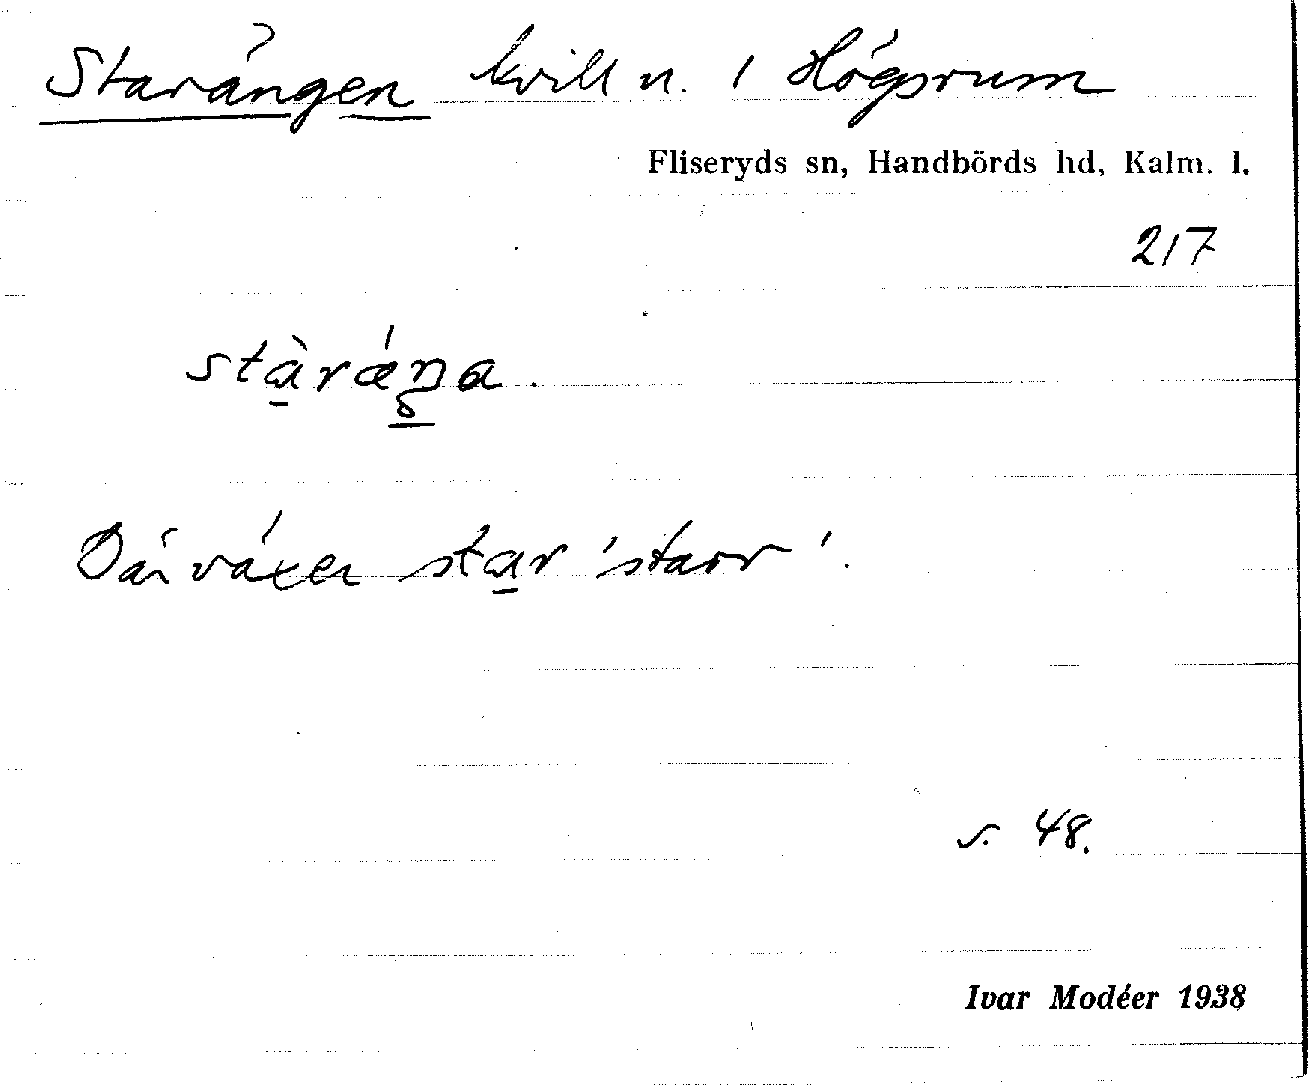 Starängen kvill n. i Högsrum
Fliseryds sn, Handbörds hd, Kalm. l.
217
stàráŋa.
Där växer star 'starr'.
s. 48.
Ivar Modéer 1938